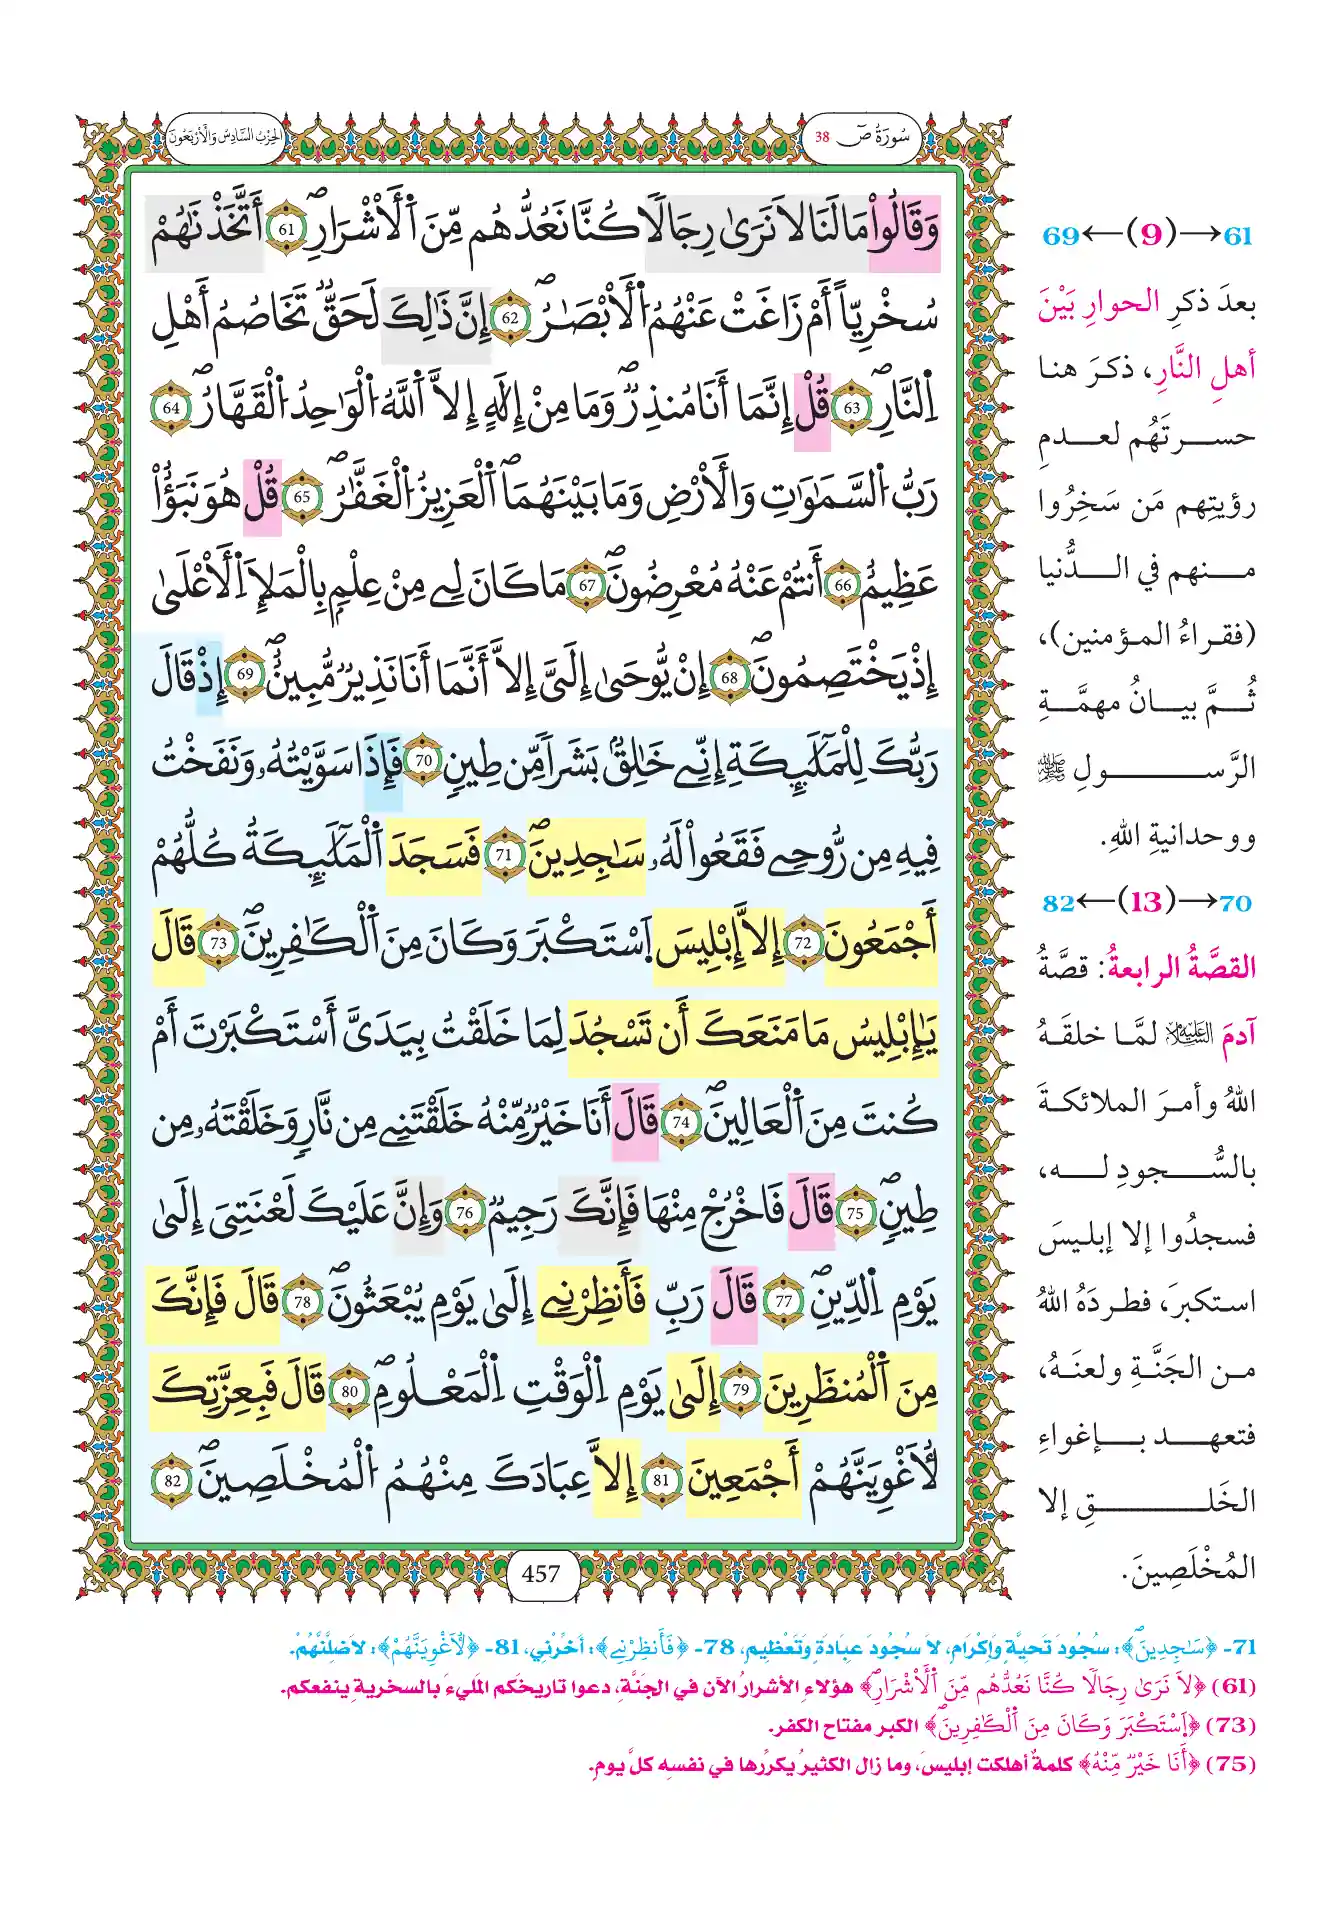 سُورَةُ صٓ 38
الحِزْبُ السَّادِسُ وَالْأَرْبَعُونَ
وَقَالُواْ مَا لَنَا لَا نَرَىٰ رِجَالاٗ كُنَّا نَعُدُّهُم مِّنَ اَ۬لْأَشْرَارِۖ 61 أَتَّخَذْنَٰهُمْ
سُخْرِيّاً أَمْ زَاغَتْ عَنْهُمُ اُ۬لْأَبْصَٰرُۖ 62 إِنَّ ذَٰلِكَ لَحَقّٞ تَخَاصُمُ أَهْلِ
اِ۬لنَّارِۖ 63 قُلْ إِنَّمَا أَنَا مُنذِرٞۖ وَمَا مِنْ إِلَٰهٍ إِلَّا اَ۬للَّهُ اُ۬لْوَٰحِدُ اُ۬لْقَهَّارُۖ 64
رَبُّ اُ۬لسَّمَٰوَٰتِ وَالْأَرْضِ وَمَا بَيْنَهُمَا اَ۬لْعَزِيزُ اُ۬لْغَفَّٰرُۖ 65 قُلْ هُوَ نَبَؤٌاْ
عَظِيمٌ 66 أَنتُمْ عَنْهُ مُعْرِضُونَۖ 67 مَا كَانَ لِے مِنْ عِلْمِۭ بِالْمَلَإِ اِ۬لْأَعْلَىٰ
إِذْ يَخْتَصِمُونَۖ 68 إِنْ يُّوحَىٰ إِلَيَّ إِلَّا أَنَّمَا أَنَا نَذِيرٞ مُّبِينٌۖ 69 إِذْ قَالَ
رَبُّكَ لِلْمَلَٰٓئِكَةِ إِنِّے خَٰلِقُۢ بَشَراٗ مِّن طِينٖ 70 فَإِذَا سَوَّيْتُهُۥ وَنَفَخْتُ
فِيهِ مِن رُّوحِے فَقَعُواْ لَهُۥ سَٰجِدِينَۖ 71 فَسَجَدَ اَ۬لْمَلَٰٓئِكَةُ كُلُّهُمْ
أَجْمَعُونَ 72 إِلَّا إِبْلِيسَ اَ۪سْتَكْبَرَ وَكَانَ مِنَ اَ۬لْكَٰفِرِينَۖ 73 قَالَ
يَٰإِبْلِيسُ مَا مَنَعَكَ أَن تَسْجُدَ لِمَا خَلَقْتُ بِيَدَيَّ أَسْتَكْبَرْتَ أَمْ
كُنتَ مِنَ اَ۬لْعَالِينَۖ 74 قَالَ أَنَا خَيْرٞ مِّنْهُ خَلَقْتَنِے مِن نّٰارٖ وَخَلَقْتَهُۥ مِن
طِينٖۖ 75 قَالَ فَاخْرُجْ مِنْهَا فَإِنَّكَ رَجِيمٞ 76 وَإِنَّ عَلَيْكَ لَعْنَتِيَ إِلَىٰ
يَوْمِ اِ۬لدِّينِۖ 77 قَالَ رَبِّ فَأَنظِرْنِے إِلَىٰ يَوْمِ يُبْعَثُونَۖ 78 قَالَ فَإِنَّكَ
مِنَ اَ۬لْمُنظَرِينَ 79 إِلَىٰ يَوْمِ اِ۬لْوَقْتِ اِ۬لْمَعْلُومِۖ 80 قَالَ فَبِعِزَّتِكَ
لَأُغْوِيَنَّهُمْ أَجْمَعِينَ 81 إِلَّا عِبَادَكَ مِنْهُمُ اُ۬لْمُخْلَصِينَۖ 82
457
61→(9)←69
بعدَ ذكرِ الحوارِ بَيْنَ
أهلِ النَّارِ، ذكرَ هنا
حسرتَهُم لعدمِ
رؤيتِهم مَن سَخِرُوا
منهم في الدُّنيا
(فقراءُ المؤمنين)،
ثُمَّ بيانُ مهمَّةِ
الرَّسولِ ﷺ
ووحدانيةِ اللهِ.
70→(13)←82
القصَّةُ الرابعةُ: قصَّةُ
آدمَ عليه السلام لمَّا خلقَهُ
اللهُ وأمرَ الملائكةَ
بالسُّجودِ له،
فسجدُوا إلا إبليسَ
استكبرَ، فطردَهُ اللهُ
من الجَنَّةِ ولعنَهُ،
فتعهد بإغواءِ
الخَلقِ إلا
المُخْلَصِينَ.
71- ﴿سَٰجِدِينَۖ﴾: سُجُودَ تَحِيَّةٍ وَإِكْرَامٍ، لَا سُجُودَ عِبَادَةٍ وَتَعْظِيمٍ، 78- ﴿فَأَنظِرْنِے﴾: أَخِّرْنِي، 81- ﴿لَأُغْوِيَنَّهُمْ﴾: لَأُضِلَّنَّهُمْ.
(61) ﴿لَا نَرَىٰ رِجَالاٗ كُنَّا نَعُدُّهُم مِّنَ اَ۬لْأَشْرَارِۖ﴾ هؤلاءِ الأشرارُ الآن في الجَنَّةِ، دعوا تاريخَكم المليءَ بالسخريةِ ينفعكم.
(73) ﴿اَ۪سْتَكْبَرَ وَكَانَ مِنَ اَ۬لْكَٰفِرِينَۖ﴾ الكبر مفتاح الكفر.
(75) ﴿أَنَا خَيْرٞ مِّنْهُ﴾ كلمةٌ أهلكت إبليسَ، وما زال الكثيرُ يكرِّرها في نفسِه كلَّ يومٍ.